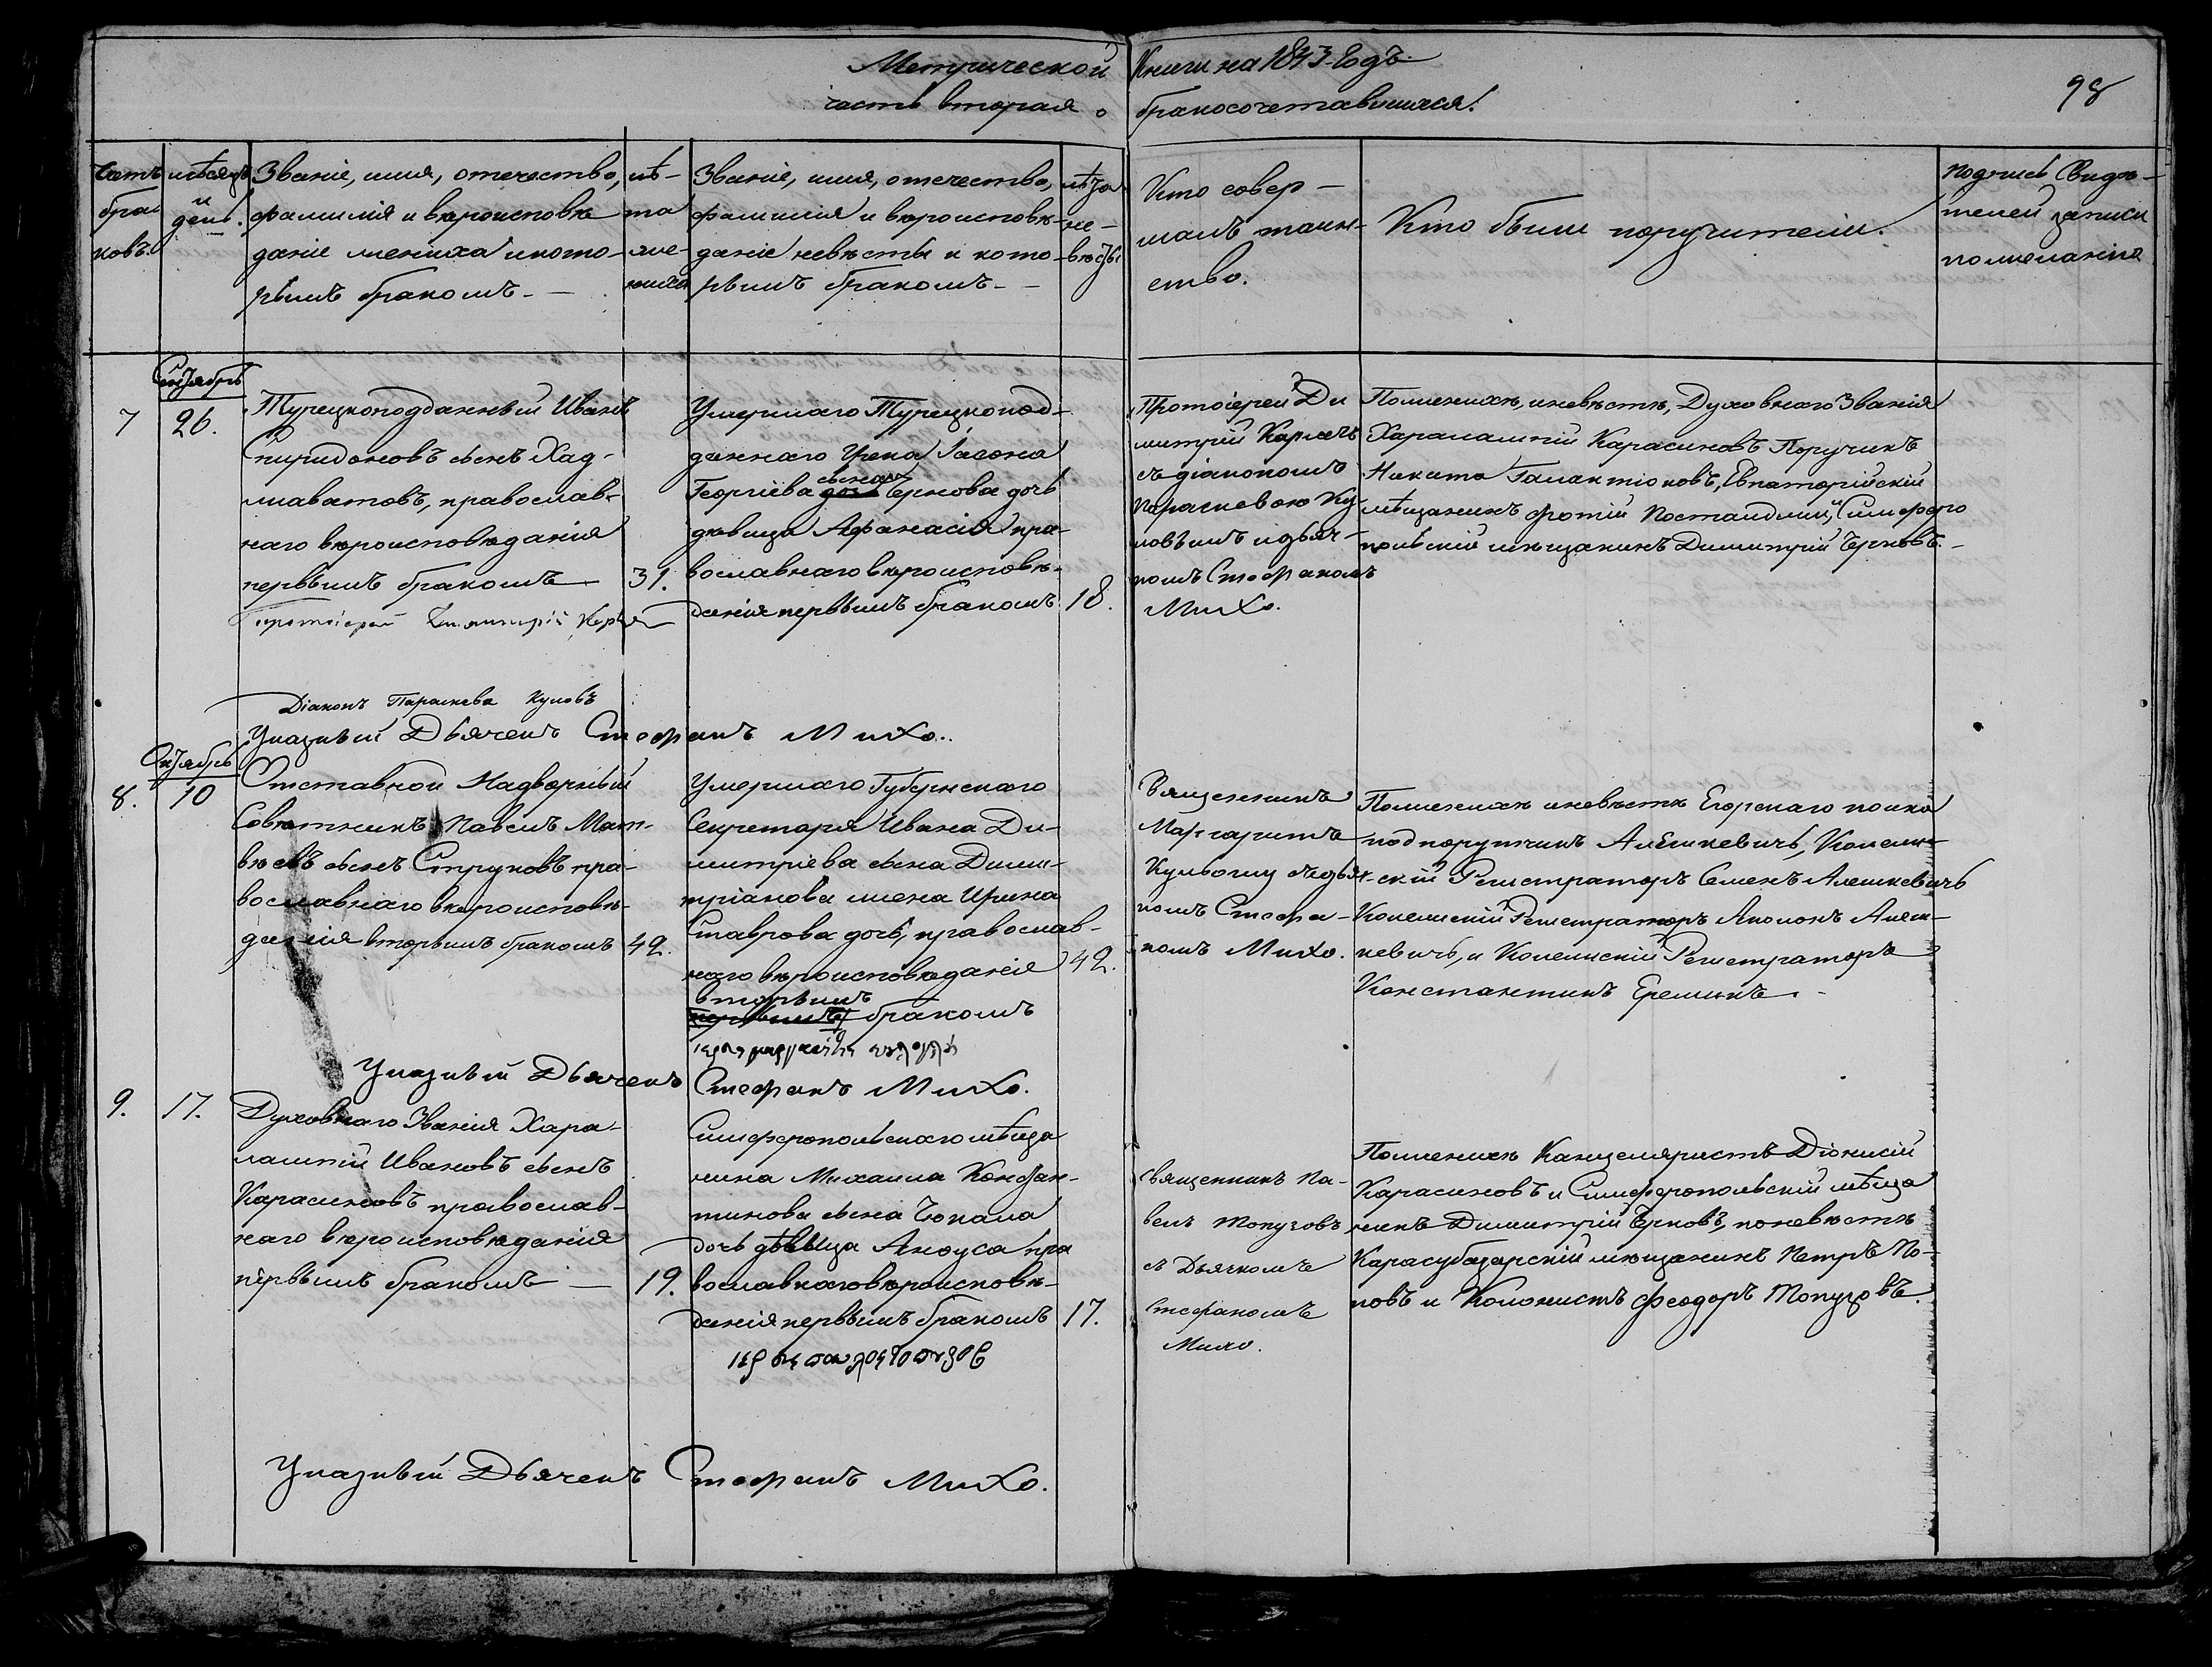 Метрической Книги на 1843 Годъ.
часть вторая о бракосочетавшихся.
98
Счетъ браковъ.
мѣсяцъ и день.
Званіе, имя, отечество,
фамилія и вѣроисповѣ
даніе жениха и кото-
рымъ бракомъ. —
лѣ-
та
же-
ниха
Званіе, имя, отечество,
фамилія и вѣроисповѣ-
даніе невѣсты и кото-
рымъ бракомъ. —
лѣта
не-
вѣсты
Кто совер-
шалъ таин-
ство.
Кто были поручители.
Подпись Свидѣ-
телей записи
по желанію
Сентябрь
7
26.
Турецкоподданный Иванъ
Спиридоновъ сынъ Хад-
жиаватовъ, православ-
наго вѣроисповѣданія
первымъ бракомъ —
31.
Умершаго Турецкопод-
даннаго Грека Іасона
Георгіева сына Чернова дочь
дѣвица Афанасія пра-
вославнаго вѣроисповѣ-
данія первымъ бракомъ
18.
Протоіерей Ди
митрій Карпачъ
съ діакономъ
Параскевою Ку
ловымъ и дьяч-
комъ Стефаномъ
Михо.
По женихѣ, и невѣстѣ, Духовнаго Званія
Харалампій Карасиновъ Поручикъ
Никита Галактіоновъ, Евпаторійскій
мѣщанинъ Фотій Постанджи, и Симферо
польскій мѣщанинъ Димитрій Черновъ. —
Протоіерей Димитрій
Діаконъ Параскева Куловъ
Указный Дьячекъ Стефанъ Михо.
Октябрь
8.
10
Отставной Надворный
Совѣтникъ Павелъ Мат-
вѣевъ сынъ Струковъ пра-
вославнаго вѣроисповѣ-
данія вторымъ бракомъ
49.
Умершаго Губернскаго
Секретаря Ивана Ди-
митріева сына Дими-
тріанова жена Ирина
Ставрова дочь, православ-
наго вѣроисповѣданія
вторымъ
первымъ бракомъ
42.
Священникъ
Маргаритъ
Кульоглу съ дья-
комъ Стефа-
номъ Михо.
По женихѣ и невѣстѣ Егорскаго полка
подпорутчикъ Алешкевичь, Коллеж-
скій Регистраторъ Семенъ Алешкевичь
Колежскій Регистраторъ Аполонъ Алеш-
кевичь, и Колежскій Регистраторъ
Константинъ Ереминъ. —
Указный Дьячекъ Стефанъ Михо.
9.
17.
Духовнаго Званія Хара-
лампій Ивановъ сынъ
Карасиновъ православ-
наго вѣроисповѣданія
первымъ бракомъ —
19.
Симферопольскаго мѣща
нина Михаила Констан-
тинова сына Чокала
дочь дѣвыца Анфуса пра
вославнаго вѣроисповѣ-
данія первымъ бракомъ
17.
Священникъ Па-
велъ Топузовъ
съ Дьячкомъ
Стефаномъ
Михо.
По женихѣ Канцеляристъ Діонисій
Карасиновъ и Симферопольскій мѣща
нинъ Димитрій Черновъ, по невѣстѣ
Карасубазарскій мѣщанинъ Петръ По-
повъ и Колонистъ Феодоръ Топузовъ.
Указный Дьячекъ Стефанъ Михо.